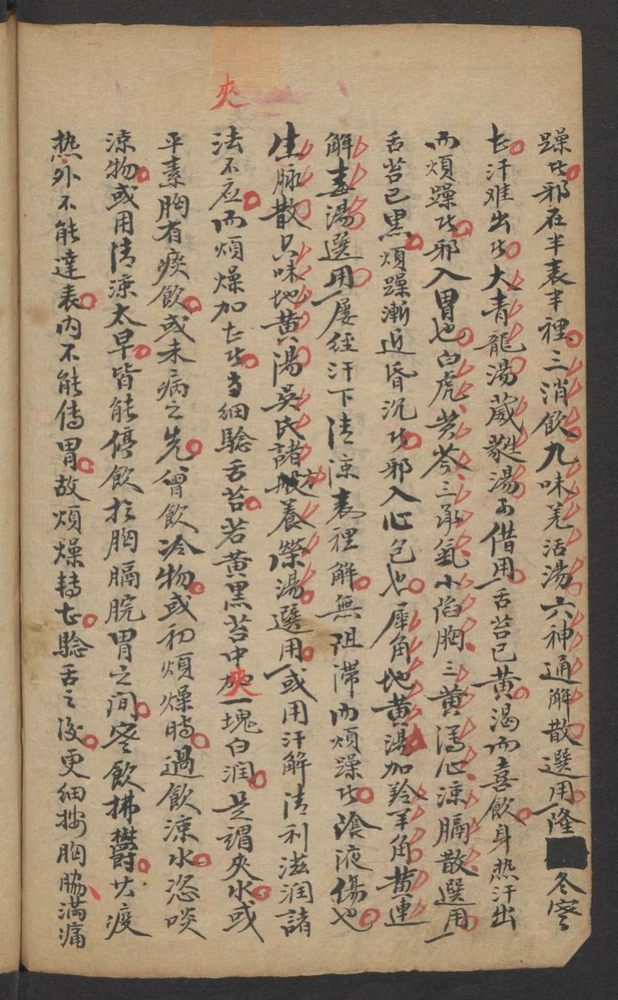 夾
躁此邪在半表半裡三消飲九味羌活湯六神通解散選用隆冬寒
甚汗难出此大青龍湯葳蕤湯可借用舌苔已黄渴而喜飲身热汗出
而煩躁此邪入胃也白虎黄芩三承氣小陷胸三黄瀉心涼膈散選用一
舌苔已黑煩躁漸近昏沉此邪入心包也犀角地黄湯加羚羊角黄連
解毒湯選用屡经汗下清涼表裡解無阻滞而煩躁此陰液傷也
生脉散六味地黄湯吴氏諸般養榮湯選用或用汗解清利滋润諸
法不应而煩燥加甚此當細驗舌苔若黄黑苔中夾一塊白润是谓夾水或
平素胸有痰飲或未病之先曾飲冷物或初煩燥時過飲涼水恣啖
涼物或用清涼太早皆能停飲於胸膈脘胃之間寒飲拂欝疫
热外不能達表内不能傳胃故煩燥轉甚驗舌之後更細按胸脇滿痛